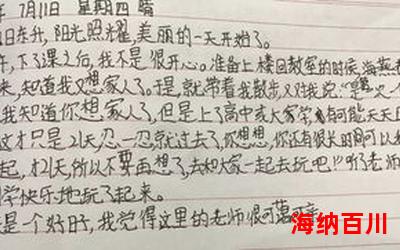 年 7月11日 星期四 晴
旭日东升,阳光照耀,美丽的一天开始了。
午,下了课之后,我不是很开心。准备上楼回教室的时候,海燕
来,知道我又想家人了。于是,就带着我散步,又对我说:"是 火
我知道你想家人了,但是上了高中或大家学,有可能天天
这才只是21天,忍一忍就过去了,你想想,你还有很长时间可以和
起,才21天,所以不要再想了,去和大家一起去玩吧!"听了老师
学快乐地玩了起来。
是一个好日子,我觉得这里的老师很可蔼可亲
海纳百川